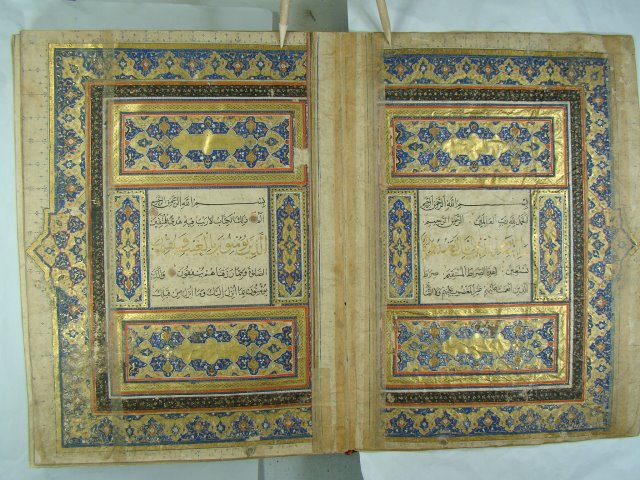 بسم الله الرحمن الرحيم
الحمد لله رب العالمين الرحمن الرحيم
ملك يوم الدين اياك نعبد واياك
نستعين اهدنا الصراط المستقيم صراط
الذين انعمت عليهم غير المغضوب عليهم ولا الضالين
بسم الله الرحمن الرحيم
الم ذلك الكتاب لا ريب فيه هدى للمتقين
الذين يؤمنون بالغيب ويقيمون
الصلوة ومما رزقناهم ينفقون والذين
يؤمنون بما انزل اليك وما انزل من قبلك